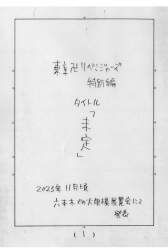 東京卍リベンジャーズ
特別編
タイトル
「未定」
2023年11月頃
六本木での大規模展覧会にて
発表
(1)